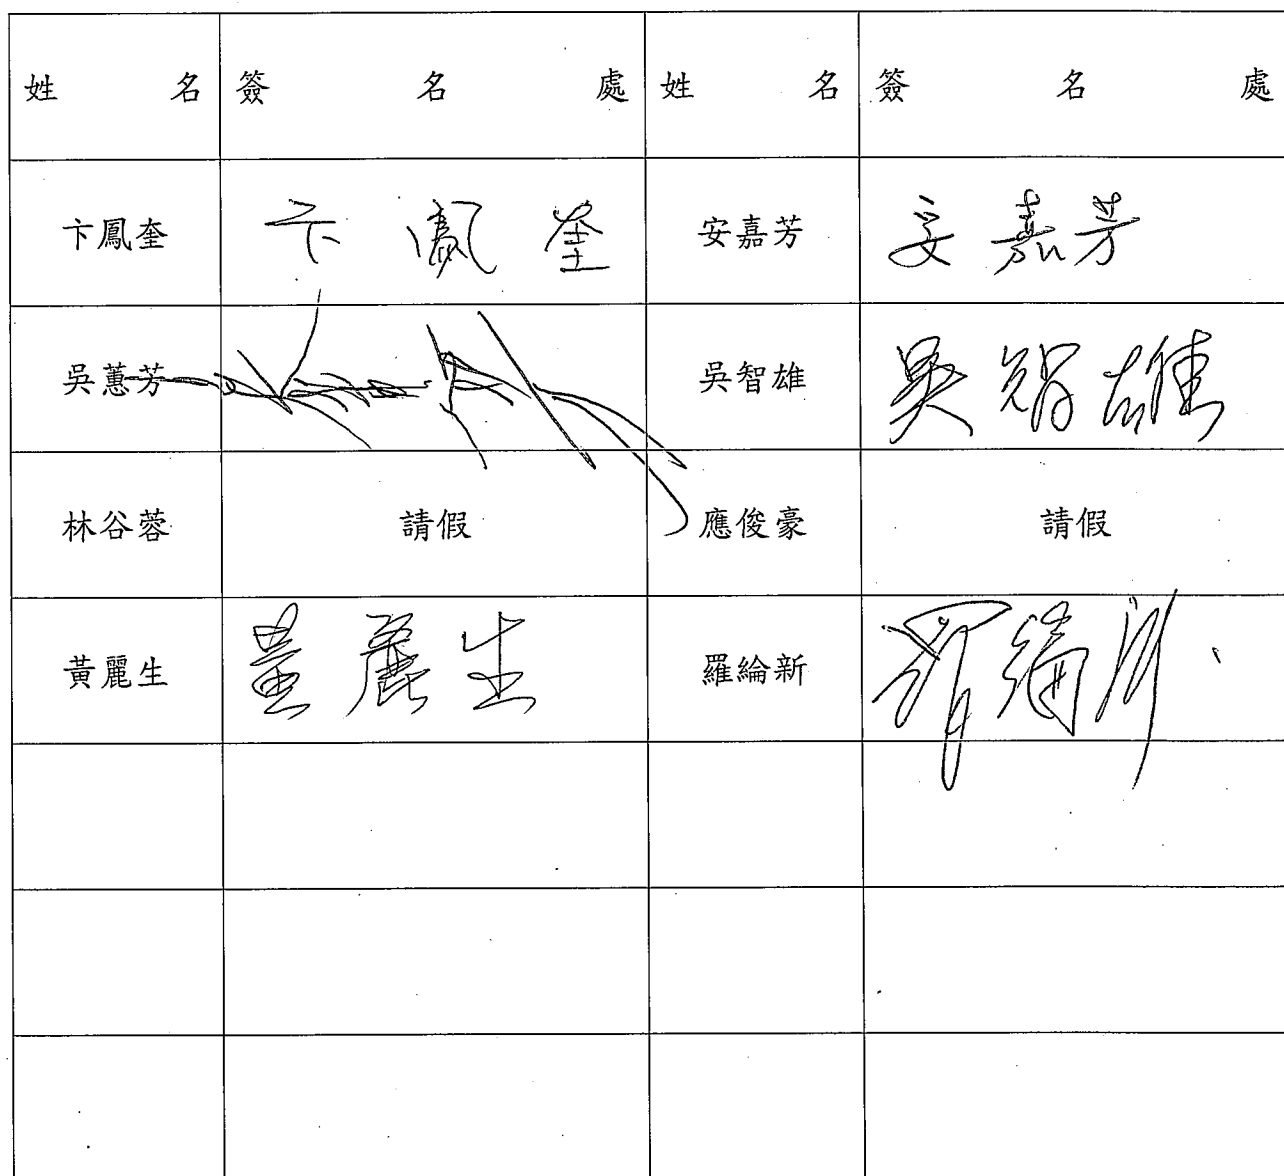 姓名 簽名處 姓名 簽名處
卞鳳奎 卞鳳奎 安嘉芳 安嘉芳
吳蕙芳 吳智雄 吳智雄
林谷蓉 請假 應俊豪 請假
黃麗生 黃麗生 羅綸新 羅綸新